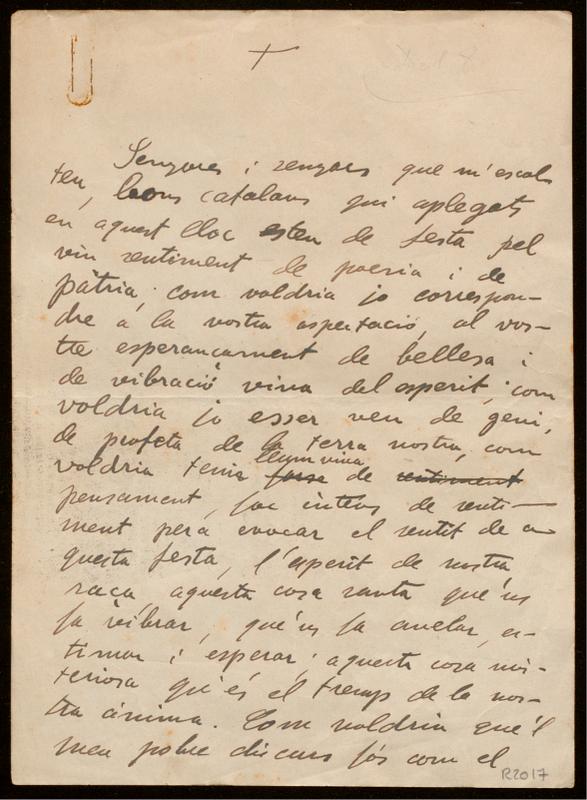 +
Senyores i senyors que m'escol
ten, bons catalans qui aplegats
en aquest lloc esteu de festa pel
viu sentiment de poesia i de
pàtria; com voldria jo correspon-
dre a la vostra aspectació, al vos-
tre esperançament de bellesa i
de vibració viva del esperit; com
voldria jo esser veu de geni,
de profeta de la terra nostra, com
voldria tenir llum viva de
pensament, foc intens de senti-
ment pera evocar el sentit de a-
questa festa, l'esperit de nostra
raça aquesta cosa santa que'ns
fa vibrar, que'ns fa anelar, es-
timar i esperar; aquesta cosa mis-
teriosa qu'és el tremp de la nos-
tra ànima. Com voldria que'l
meu pobre discurs fós com el
R2017